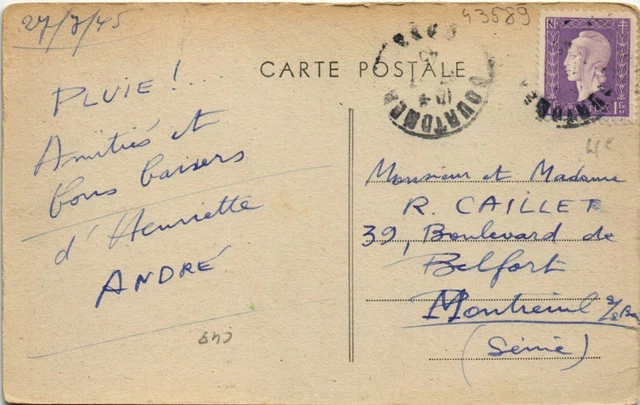 27/7/45
43689
CARTE POSTALE
1Fr
4€
PLUIE !
Amitiés et
bons baisers
d'Henriette
ANDRÉ
843
Monsieur et Madame
R. CAILLET
39, Boulevard de
Belfort
Montreuil s/s Bois
(Seine)